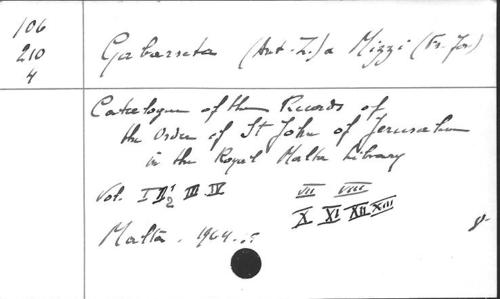 106
210
4
Gabarreta (Ant-Z.) a Mizzi (Fr. Jos)
Catalogue of the Records of
the Order of St John of Jerusalem
in the Royal Malta Library
Vol. I II 1/2 III IV VII VIII
X XI XII XIII
Malta. 1964..
8